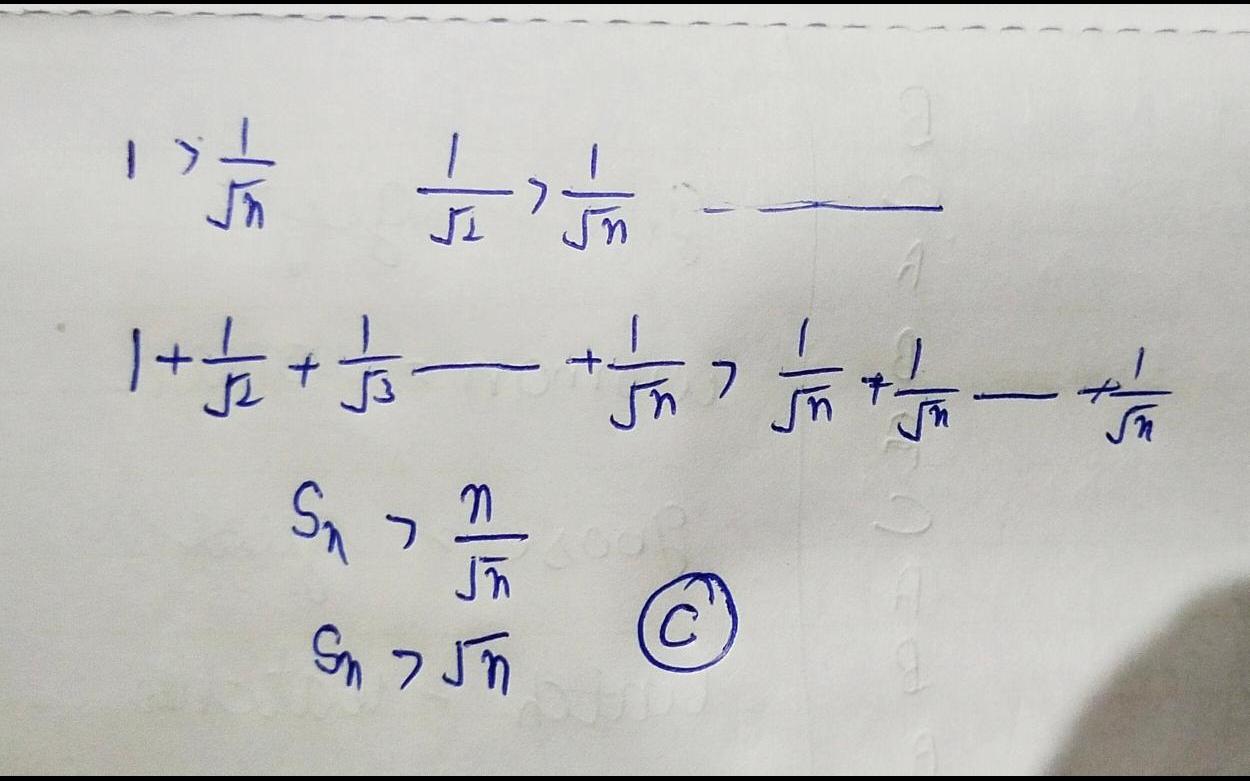 1 > 1/√n   1/√2 > 1/√n - — —
1 + 1/√2 + 1/√3 — + 1/√n > 1/√n + 1/√n — + 1/√n
Sn > n/√n
Sn > √n   C